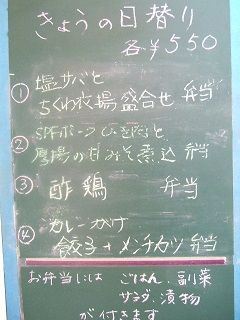 きょうの日替り
各¥550
① 塩サバと
ちくわ衣揚盛合せ 弁当
② SPFポークひき肉と
厚揚の甘みそ煮込 弁当
③ 酢鶏 弁当
④ カレーがけ
餃子+メンチカツ弁当
お弁当には ごはん、副菜
サラダ、漬物
が付きます